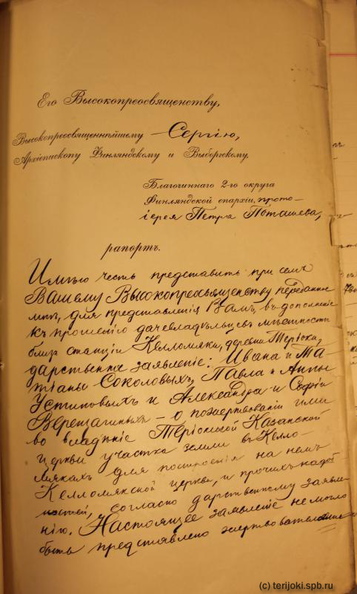 Его Высокопреосвященству,
Высокопреосвященнѣйшему Сергію,
Архіепископу Финляндскому и Выборгскому.
Благочиннаго 2-го округа
Финляндской епархіи, прото-
іерея Петра Поташева,
рапортъ.
Имѣю честь представить при семъ
Вашему Высокопреосвященству переданное
мнѣ, для представленія Вамъ, въ дополненіе
къ прошенію дачевладѣльцевъ мѣстности
близъ станціи Келломяки, деревни Теріоки,
дарственное заявленіе: Ивана и Та-
тіаны Соколовыхъ, Павла и Анны
Устиновыхъ и Александра и Софіи
Верещагиныхъ - о пожертвованіи ими
во владѣніе Теріокской Казанской
церкви участка земли въ Келло-
мякахъ для построенія на немъ
Келломякской церкви, и прочихъ надоб-
ностей, согласно дарственному заявле-
нію. Настоящее заявленіе не могло
быть представлено жертвователями
(c) terijoki.spb.ru